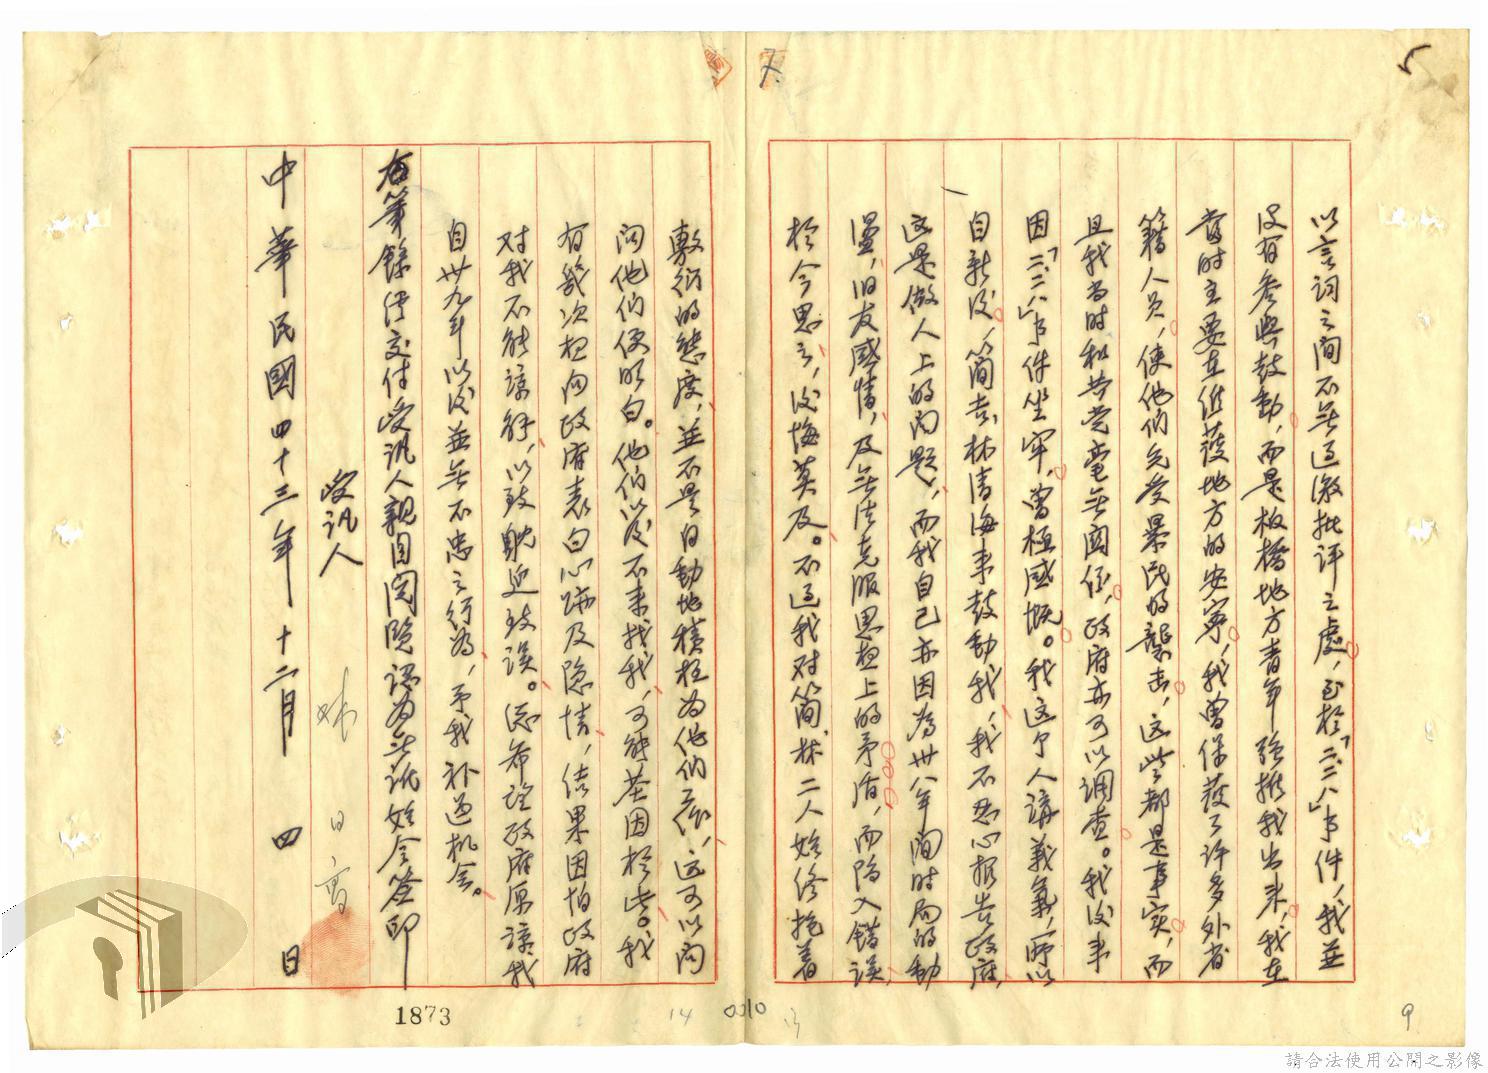 5
以言詞之間不無過激批評之處，至於「二.二八」事件，我並
沒有參與鼓動，而是板橋地方青年強推我出来，我在
當时主要在維護地方的安寧，我曾保護了許多外省
籍人员，使他們免受暴民的襲击，这些都是事实，而
且我当时和共党毫無関係，政府亦可以调查。我後来
因「二.二八」事件坐牢，曾極感慨。我这个人講義氣，所以
自新後，簡吉、林清海来鼓動我，我不忍心报告政府，
这是做人上的问题，而我自己亦因為卅八年间时局的動
盪，旧友感情，及無法克服思想上的矛盾，而陷入錯誤，
於今思之，後悔莫及。不过我对簡、林二人始终抱着
敷衍的態度，並不是自動地積极为他们工作，这可以问
问他们便明白。他们以後不来找我，可能基因於此。我
有幾次想向政府表白心跡及隐情，结果因怕政府
对我不能諒解，以致躭延致误。总希望政府原諒我
自卅九年以後並無不忠之行為，予我补过机会。
右筆錄經交付受訊人親自閱覽認为無訛始令簽印
受訊人 林日高
中華民國四十三年十二月四日
1873
14
0010
13
9
請合法使用公開之影像